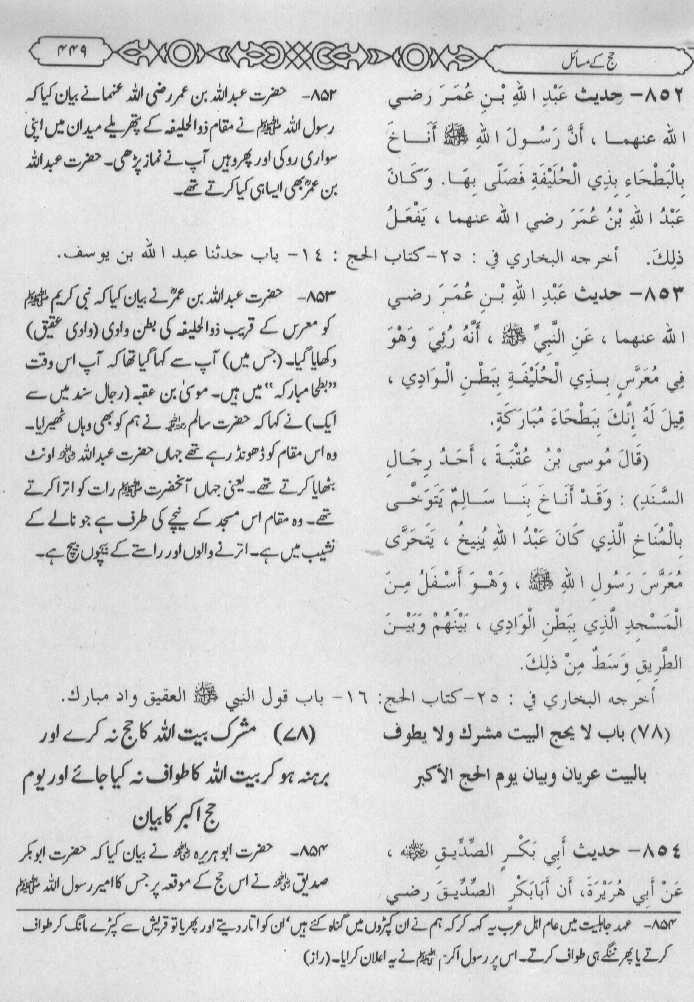 ۴۴۹
حج کے مسائل
٨٥٢- حدیث عَبْدِ اللهِ بْنِ عُمَرَ رضي
الله عنهما ، أَنَّ رَسُولَ اللهِ ﷺ أَنَاخَ
بِالْبَطْحَاءِ بِذِي الْحُلَيْفَةِ فَصَلَّى بِهَا. وَكَانَ
عَبْدُ اللهِ بْنُ عُمَرَ رضي الله عنهما ، يَفْعَلُ
ذلِكَ. أخرجه البخاري في : ٢٥-كتاب الحج : ١٤- باب حدثنا عبد الله بن يوسف.
۸۵۲- حضرت عبداللہ بن عمر رضی اللہ عنہما نے بیان کیا کہ
رسول اللہ ﷺ نے مقام ذوالحلیفہ کے پتھریلے میدان میں اپنی
سواری روکی اور پھر وہیں آپ نے نماز پڑھی۔ حضرت عبداللہ
بن عمرؓ بھی ایسا ہی کیا کرتے تھے۔
٨٥٣- حدیث عَبْدِ اللهِ بْنِ عُمَرَ رضي
الله عنهما ، عَنِ النَّبِيِّ ﷺ ، أَنَّهُ رُئِيَ وَهُوَ
فِي مُعَرَّسٍ بِذِي الْحُلَيْفَةِ بِبَطْنِ الْوَادِي ،
قِيلَ لَهُ إِنَّكَ بِبَطْحَاءَ مُبَارَكَةٍ.
(قَالَ مُوسى بْنُ عُقْبَةَ ، أَحَدُ رِجَالِ
السَّنَدِ) : وَقَدْ أَنَاخَ بِنَا سَالِمٌ يَتَوَخَّى
بِالْمُنَاخِ الَّذِي كَانَ عَبْدُ اللهِ يُنِيخُ ، يَتَحَرَّى
مُعَرَّسَ رَسُولِ اللهِ ﷺ ، وَهُوَ أَسْفَلُ مِنَ
الْمَسْجِدِ الَّذِي بِبَطْنِ الْوَادِي ، بَيْنَهُمْ وَبَيْنَ
الطَّرِيقِ وَسَطٌ مِنْ ذلِكَ.
أخرجه البخاري في : ٢٥-كتاب الحج: ١٦- باب قول النبي ﷺ العقيق واد مبارك.
۸۵۳- حضرت عبداللہ بن عمرؓ نے بیان کیا کہ نبی کریم ﷺ
کو معرس کے قریب ذوالحلیفہ کی بطن وادی (وادی عقیق)
دکھایا گیا۔ (جس میں) آپ سے کہا گیا تھا کہ آپ اس وقت
”بطحا مبارکہ“ میں ہیں۔ موسیٰ بن عقبہ (رجال سند میں سے
ایک) نے کہا کہ حضرت سالم ؒ نے ہم کو بھی وہاں ٹھہرایا۔
وہ اس مقام کو ڈھونڈ رہے تھے جہاں حضرت عبداللہ ؓ اونٹ
بٹھایا کرتے تھے۔ یعنی جہاں آنحضرت ﷺ رات کو اترا کرتے
تھے۔ وہ مقام اس مسجد کے نیچے کی طرف ہے جو نالے کے
نشیب میں ہے۔ اترنے والوں اور راستے کے بیچوں بیچ ہے۔
(٧٨) باب لا يحج البيت مشرك ولا يطوف
بالبيت عريان وبيان يوم الحج الأكبر
(۷۸) مشرک بیت اللہ کا حج نہ کرے اور
برہنہ ہو کر بیت اللہ کا طواف نہ کیا جائے اور یوم
حج اکبر کا بیان
٨٥٤- حديث أَبِي بَكْرٍ الصِّدِّيقِ ؓ ،
عَنْ أَبِي هُرَيْرَةَ، أَن أَبَابَكْرٍ الصِّدِّيقَ رضي
۸۵۴- حضرت ابوہریرہ ؓ نے بیان کیا کہ حضرت ابوبکر
صدیق ؓ نے اس حج کے موقعہ پر جس کا امیر رسول اللہ ﷺ
۸۵۴- عہد جاہلیت میں عام اہل عرب یہ کہہ کر کہ ہم نے ان کپڑوں میں گناہ کئے ہیں‘ ان کو اتار دیتے اور پھر یا تو قریش سے کپڑے مانگ کر طواف
کرتے یا پھر ننگے ہی طواف کرتے۔ اس پر رسول اکرم ﷺ نے یہ اعلان کرایا۔ (راز)